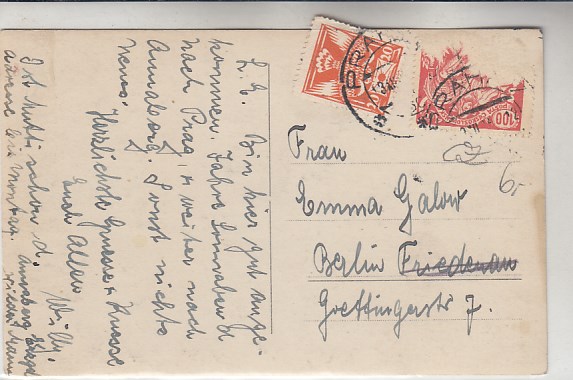 L. E. Bin hier gut ange-
kommen. Fahre Sonnabend
nach Prag u. weiter nach
Annaberg. Sonst nichts
neues.
Herzlichste Grüsse u. Küsse
Euch Allen
Willy.
Ist Mutti schon d.
Adresse bis Montag: Annaberg
Frau
Emma Galow
Berlin Friedenau
Goettingerstr 7.
CZ
6,-
100